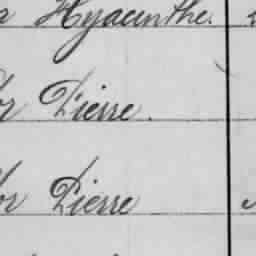 Hyacinthe.
Pierre.
Pierre